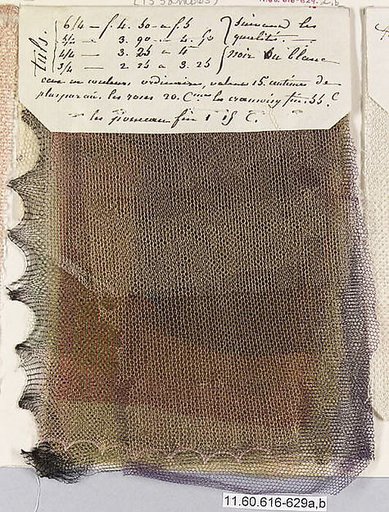 11.60.616-629a,b
tulls.
6/4 — f 4. 50 a f 5 suivant les
5/4 — 3. 90 a 4. 50 qualités
4/4 — 3. 25 a 4 noir ou blanc
3/4 — 2. 25 a 3. 25
ceux en couleurs ordinaires, valent 15. centimes de
plus par au. les roses 20. C. les cramoisy fin 55 C
les ponceau fin 1 f 5 C.
11.60.616-629a,b